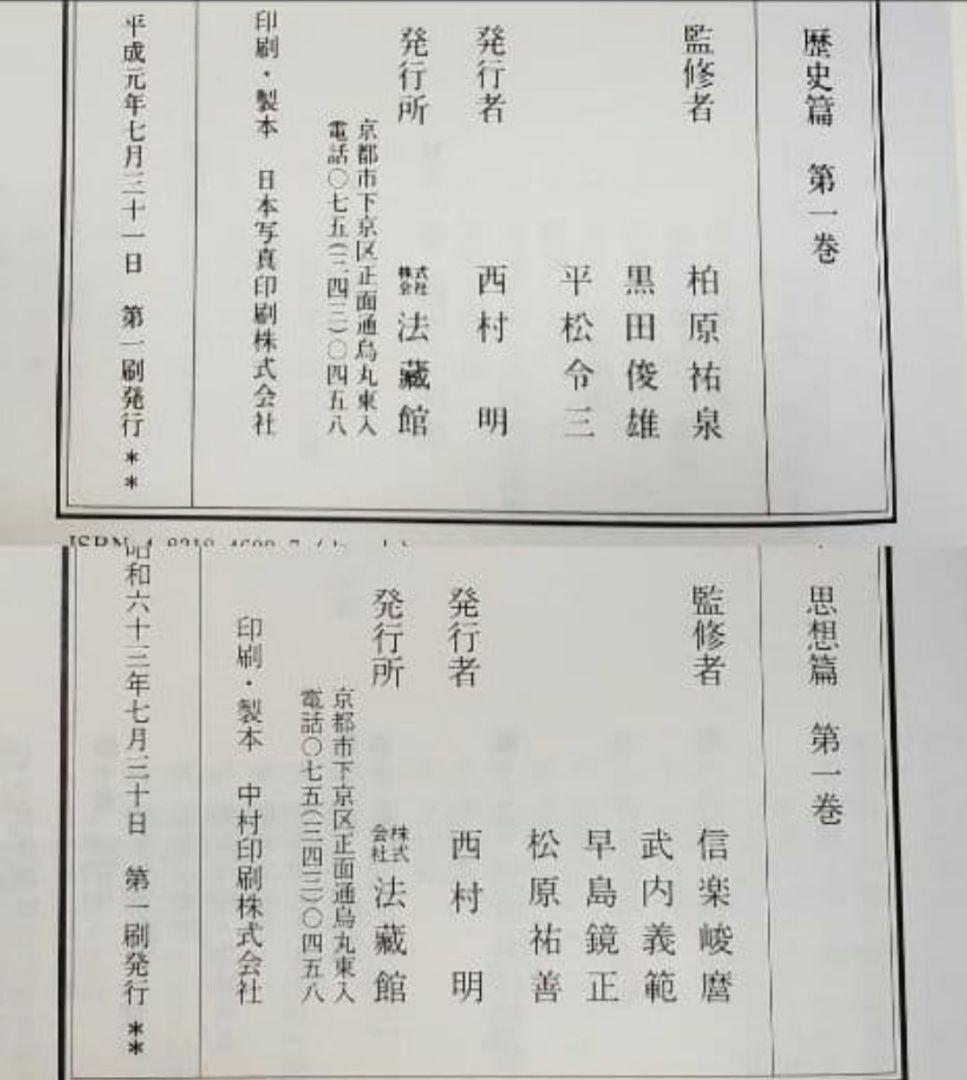 歴史篇　第一巻
監修者　柏原祐泉
黒田俊雄
平松令三
発行者　西村　明
発行所　株式会社　法藏館
京都市下京区正面通烏丸東入
電話〇七五(三四三)〇四五八
印刷・製本　日本写真印刷株式会社
平成元年七月三十一日　第一刷発行＊＊
ISBN 4-8318-4600-7
思想篇　第一巻
監修者　信楽峻麿
武内義範
早島鏡正
松原祐善
発行者　西村　明
発行所　株式会社　法藏館
京都市下京区正面通烏丸東入
電話〇七五(三四三)〇四五八
印刷・製本　中村印刷株式会社
昭和六十三年七月三十日　第一刷発行＊＊